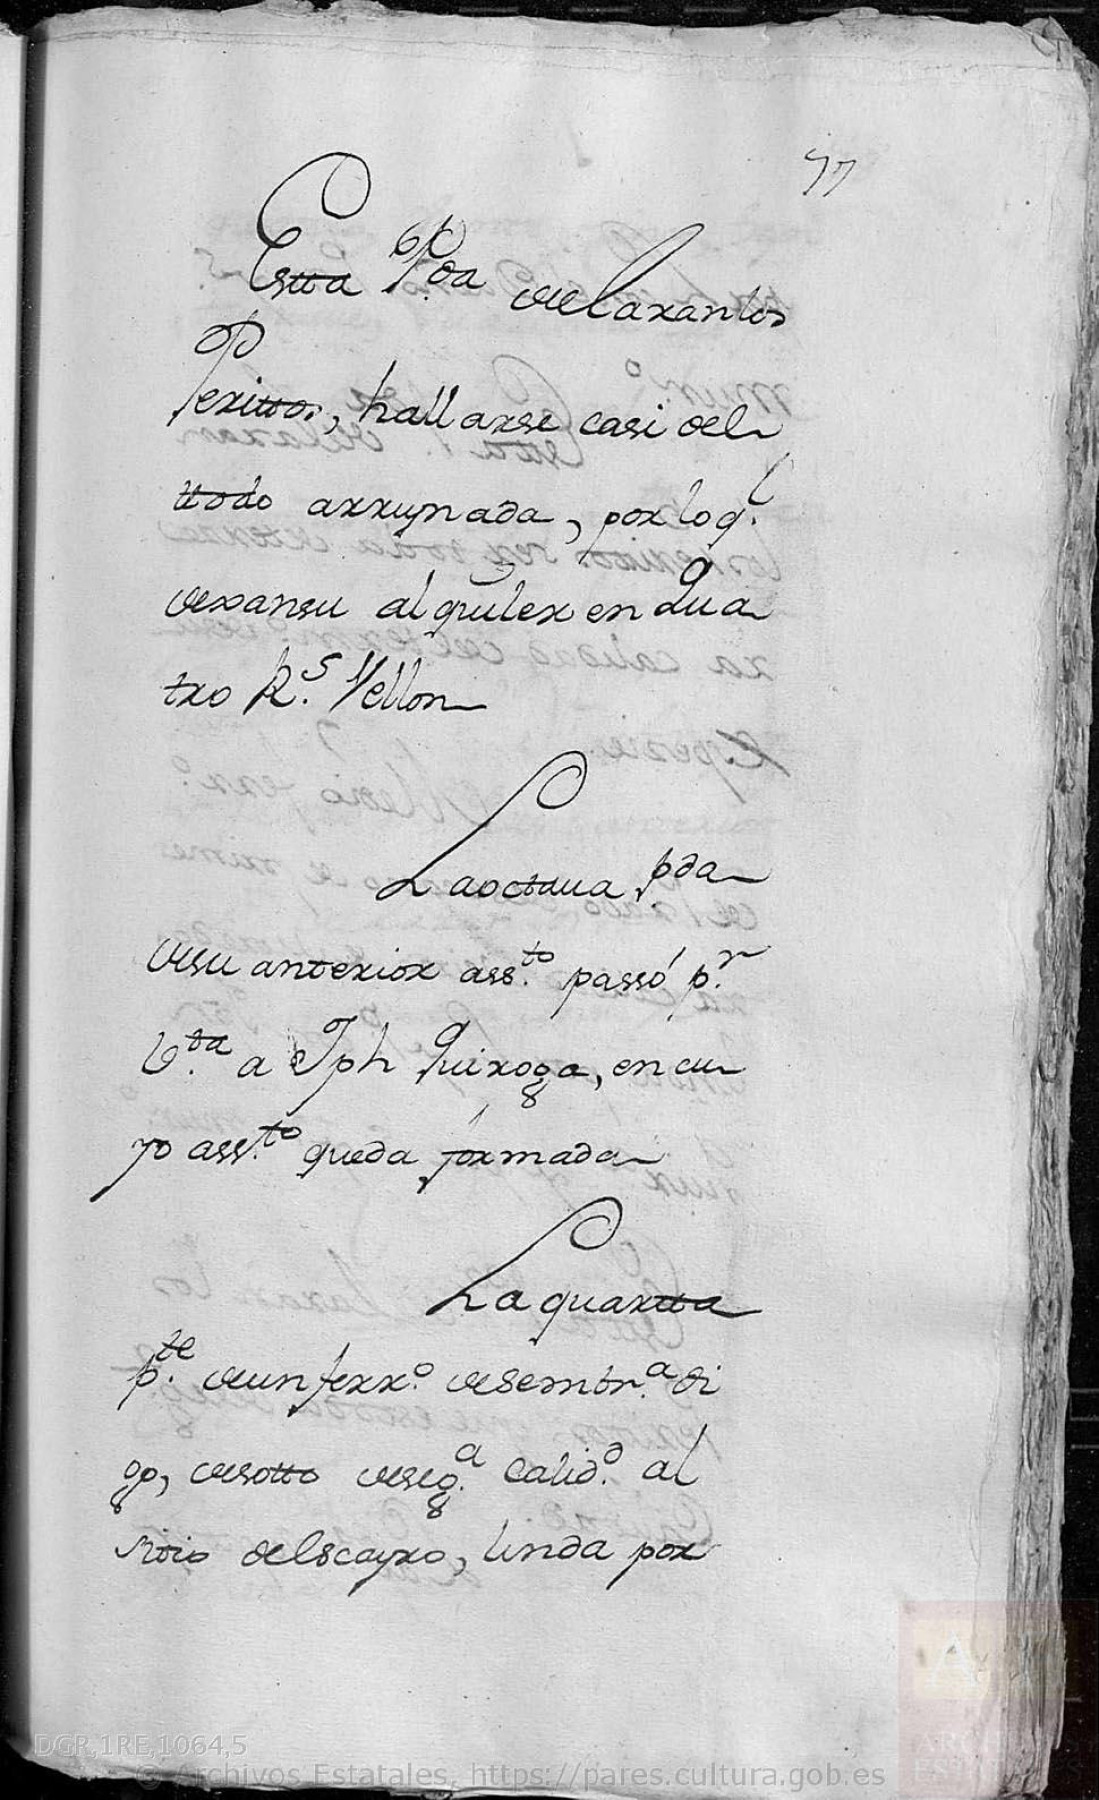 77
Estta P.da declaran los
Perittos, hallarse casi del
ttodo arruynada, por loq.l
dexansu alquiler en Qua
tro R.s Vellon
La octaua p.da
desu anterior ass.to passó p.r
V.ta a Jph Quiroga, en cu
yo ass.to queda formada
La quartta
p.te deun ferr.o desembr.a di
go, desotto deseg.a Calid.d al
sitio delscayro, linda por
DGR,1RE,1064,5
© Archivos Estatales, https://pares.cultura.gob.es